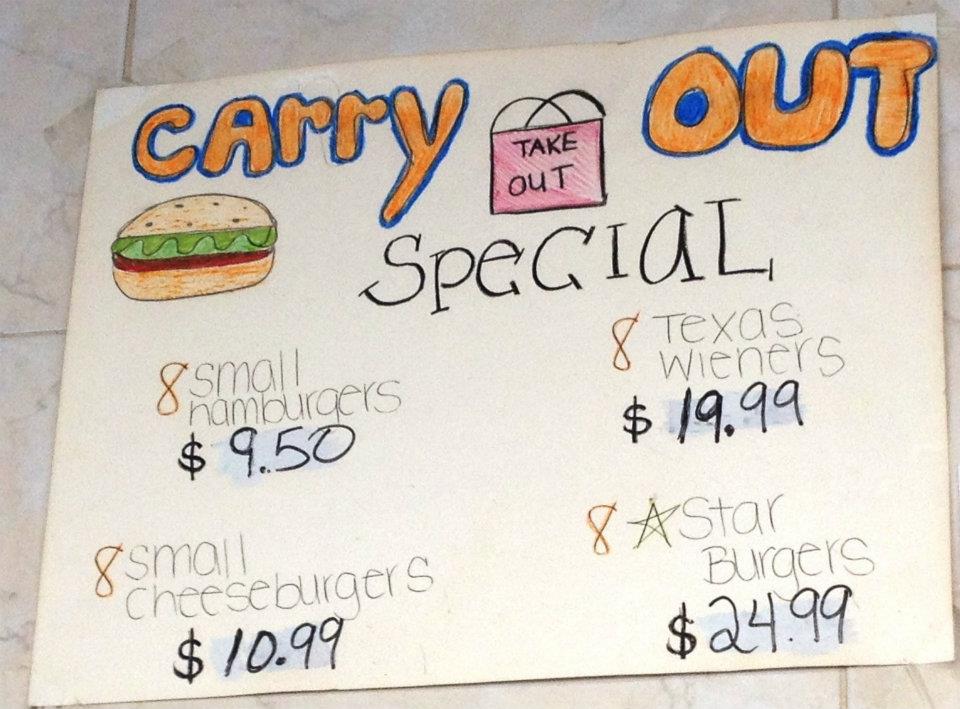 Carry OUT
TAKE
OUT
Special
8 small
hamburgers
$ 9.50
8 Texas
wieners
$ 19.99
8 small
cheeseburgers
$ 10.99
8 Star
Burgers
$ 24.99